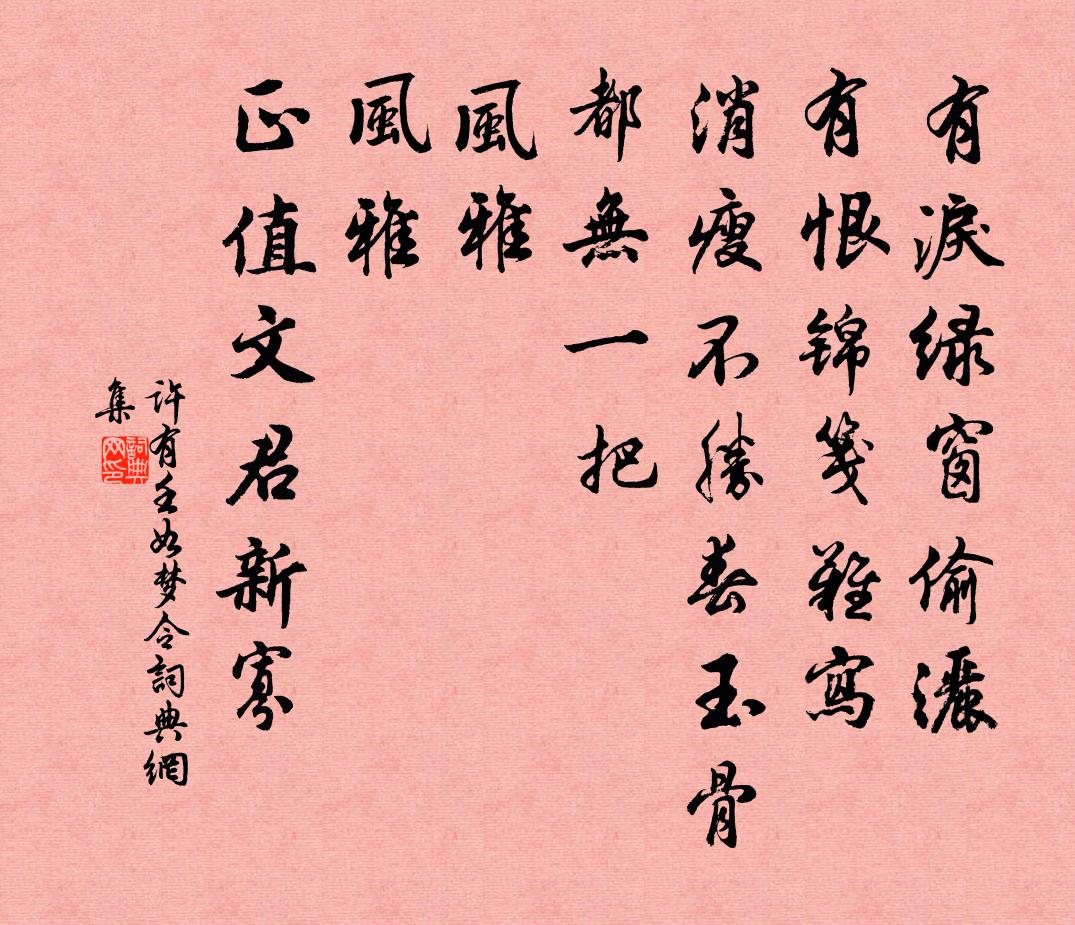 有淚绿窗偷灑
有恨锦箋難寫
消瘦不勝春玉骨
都無一把
風雅
風雅
正值文君新寡
許有壬如梦令詞典網
集
詞典
网印